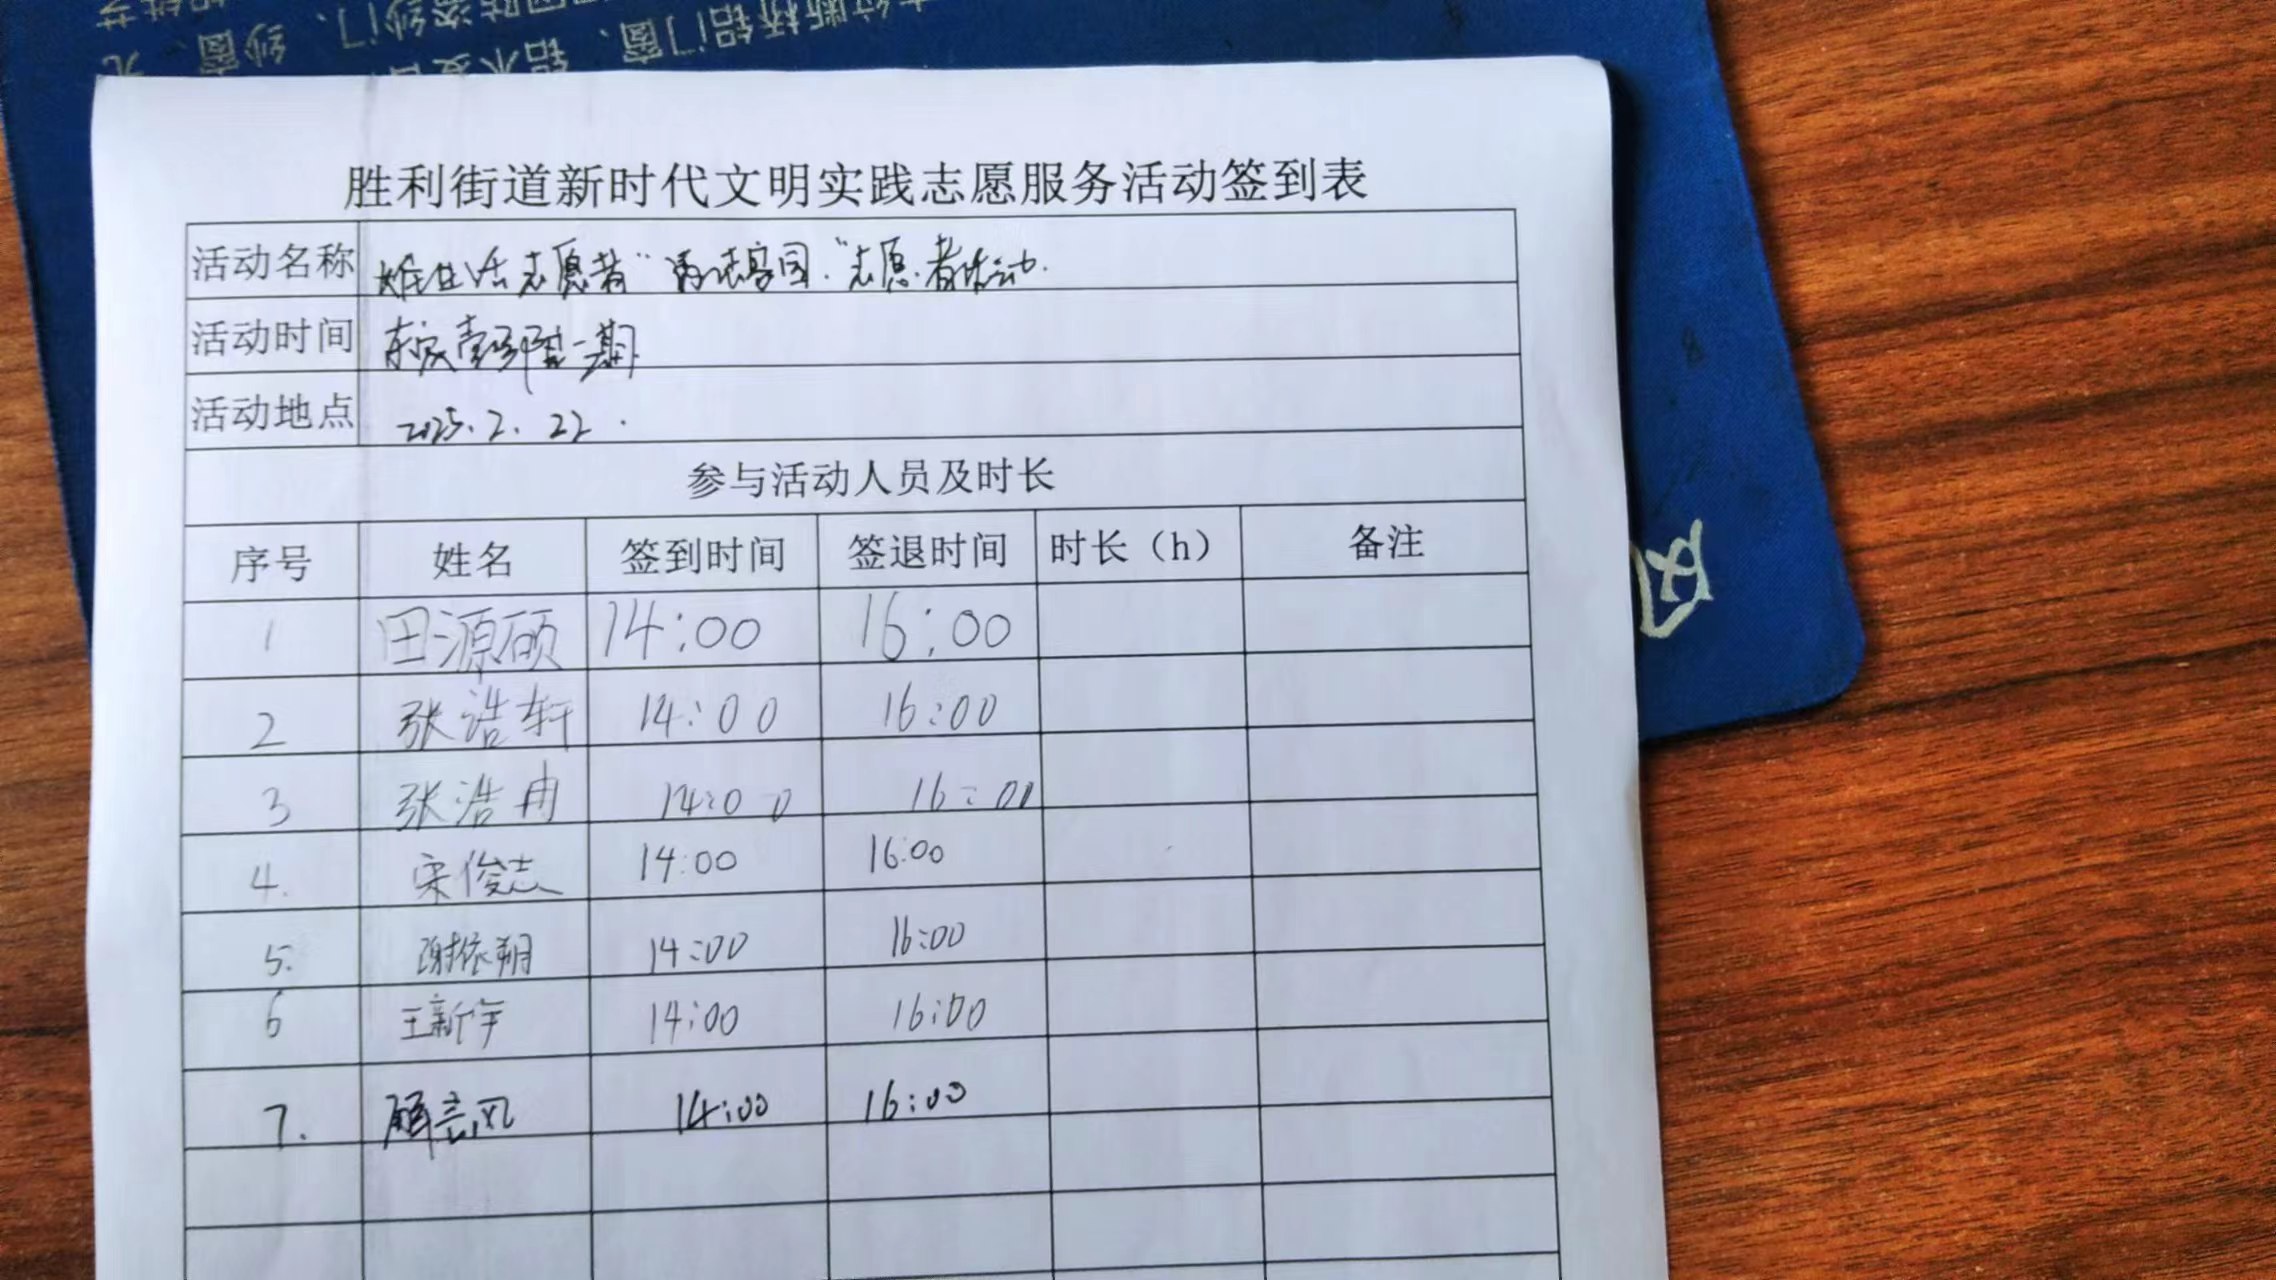 纱窗、
铝门窗、
胜利街道新时代文明实践志愿服务活动签到表
活动名称 志愿者“清洁家园”志愿者活动.
活动时间 第一期
活动地点 2025.2.22.
参与活动人员及时长
序号 姓名 签到时间 签退时间 时长（h） 备注
1 田源硕 14:00 16:00
2 张浩轩 14:00 16:00
3 张浩冉 14:00 16:00
4. 宋俊志 14:00 16:00
5. 谢依朔 14:00 16:00
6 王新宇 14:00 16:00
7. 14:00 16:00